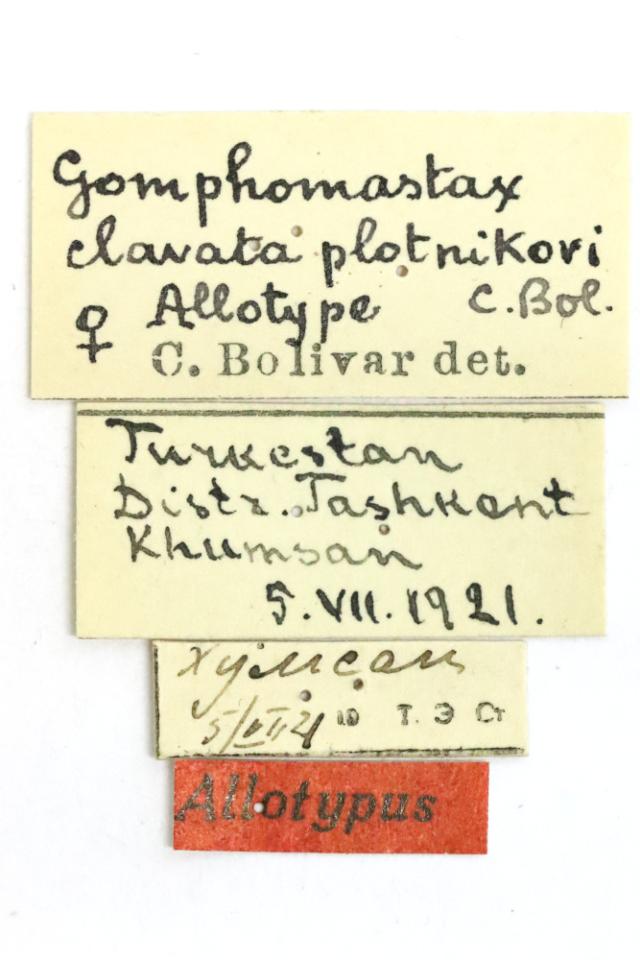 Gomphomastax
clavata plotnikovi
♀ Allotype C. Bol.
C. Bolivar det.
Turkestan
Distr. Tashkent
Khumsan
5. VII. 1921.
Хумсан
5/VII 21 Т. Э Ст
Allotypus